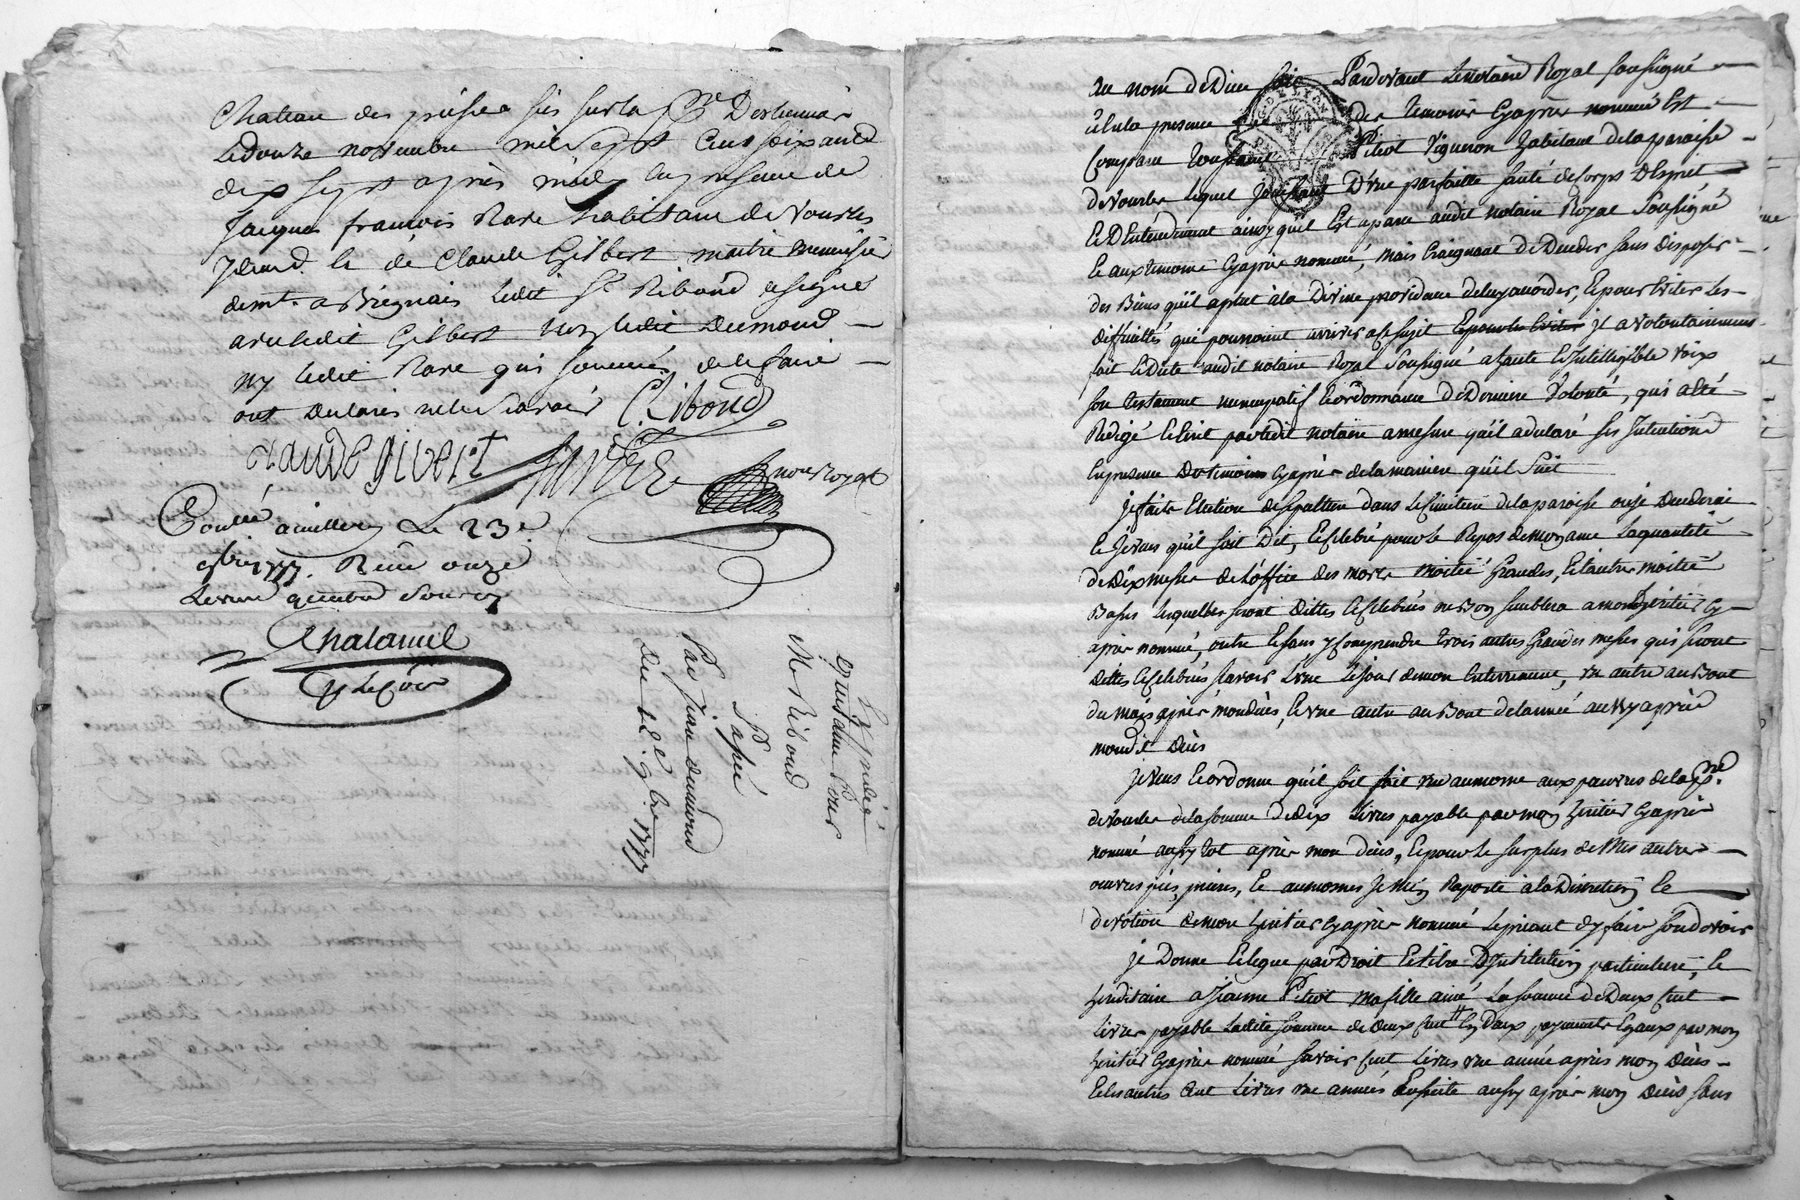 Chateau des presles sis sur la p.sse Desteines
Le douze novembre mil sept Cent soixante
dix sept après midy En presence de
Jacques francois Rave habitant de Vourles
et de Claude Gilbert maitre menuisier
demt. a Brignais ledit Sr. Riboud a signé
avec ledit Gilbert non ledit Dumond
ny ledit Rave qui sommés de le faire
ont declarés ne le scavoir C. Riboud
claude givert
noe Royal
Controllé a millery Le 23e
9bre 1777. Reçu onze
Livres quatre sous
Chalamel
Expedié
Quittance Pour
Mr Riboud
Passée
Par Jean dumond
du 12e 9bre 1777
Au nom de Dieu soit Pardevant Le notaire Royal soussigné
et En la presence des temoins Cy après nommés Est
Comparu Pitiot Vigneron habitant de la paroisse
de Vourles Lequel jouissant D'une parfaite santé de Corps D'Esprit
Et D'Entendement ainsy quil Est aparu audit notaire Royal Soussigné
Et aux temoins Cy après nommés, mais Craignant de Deceder sans disposer
des Biens qu'il a plut à la Divine providence de luy accorder, Et pour Eviter Les
difficultés qui pourroient arriver a ce sujet Et pour les Eviter il a volontairement
fait Et Dicté audit notaire Royal Soussigné a haute Et Intelligible voix
son testament nuncupatif Et ordonnance de Derniere Volonté, qui a Eté
Redigé Et Ecrit par ledit notaire a mesure qu'il a declaré ses Intentions
En presence Des temoins Cy après de la maniere qu'il suit
je fais Election de sepulture dans Le Cimetiere de la paroisse ou je Decederai
Et je veux qu'il soit Dit, Et Celebré pour le Repos de mon ame La quantité
de Dix messes de L'office des morts moitié Grandes, Et L'autre moitié
Basses Lesquelles seront Dittes Et Celebrées ou Bon semblera a mon heritier Cy
après nommé, outre Et sans y Comprendre trois autres Grandes messes qui seront
Dittes Et Celebrées scavoir L'une Le jour de mon Enterrement, une autre au Bout
du mois après mon decès, Et une autre au Bout de L'année aussy après
mondit decès
je veux Et ordonne qu'il soit fait une aumone aux pauvres de la p.sse
de Vourles de la somme de dix Livres payable par mon heritier Cy après
nommé aussy tot après mon decès, Et pour Le surplus de Mes autres
oeuvres pies, prieres, Et aumones je m'en Raporte à la Discretion Et
devotion de mon heritier Cy après nommé Le priant d'y faire son devoir
je Donne Et legue par Droit Et titre D'Institution particuliere, Et
hereditaire a Jeanne Pitiot Ma fille ainée La somme de Deux Cent
Livres payable Ladite somme de deux Cent tt En Deux payements Egaux par mon
heritier Cy après nommé scavoir Cent Livres une année après mon decès
Et les autres Cent Livres une année Ensuite aussy après mon decès sans